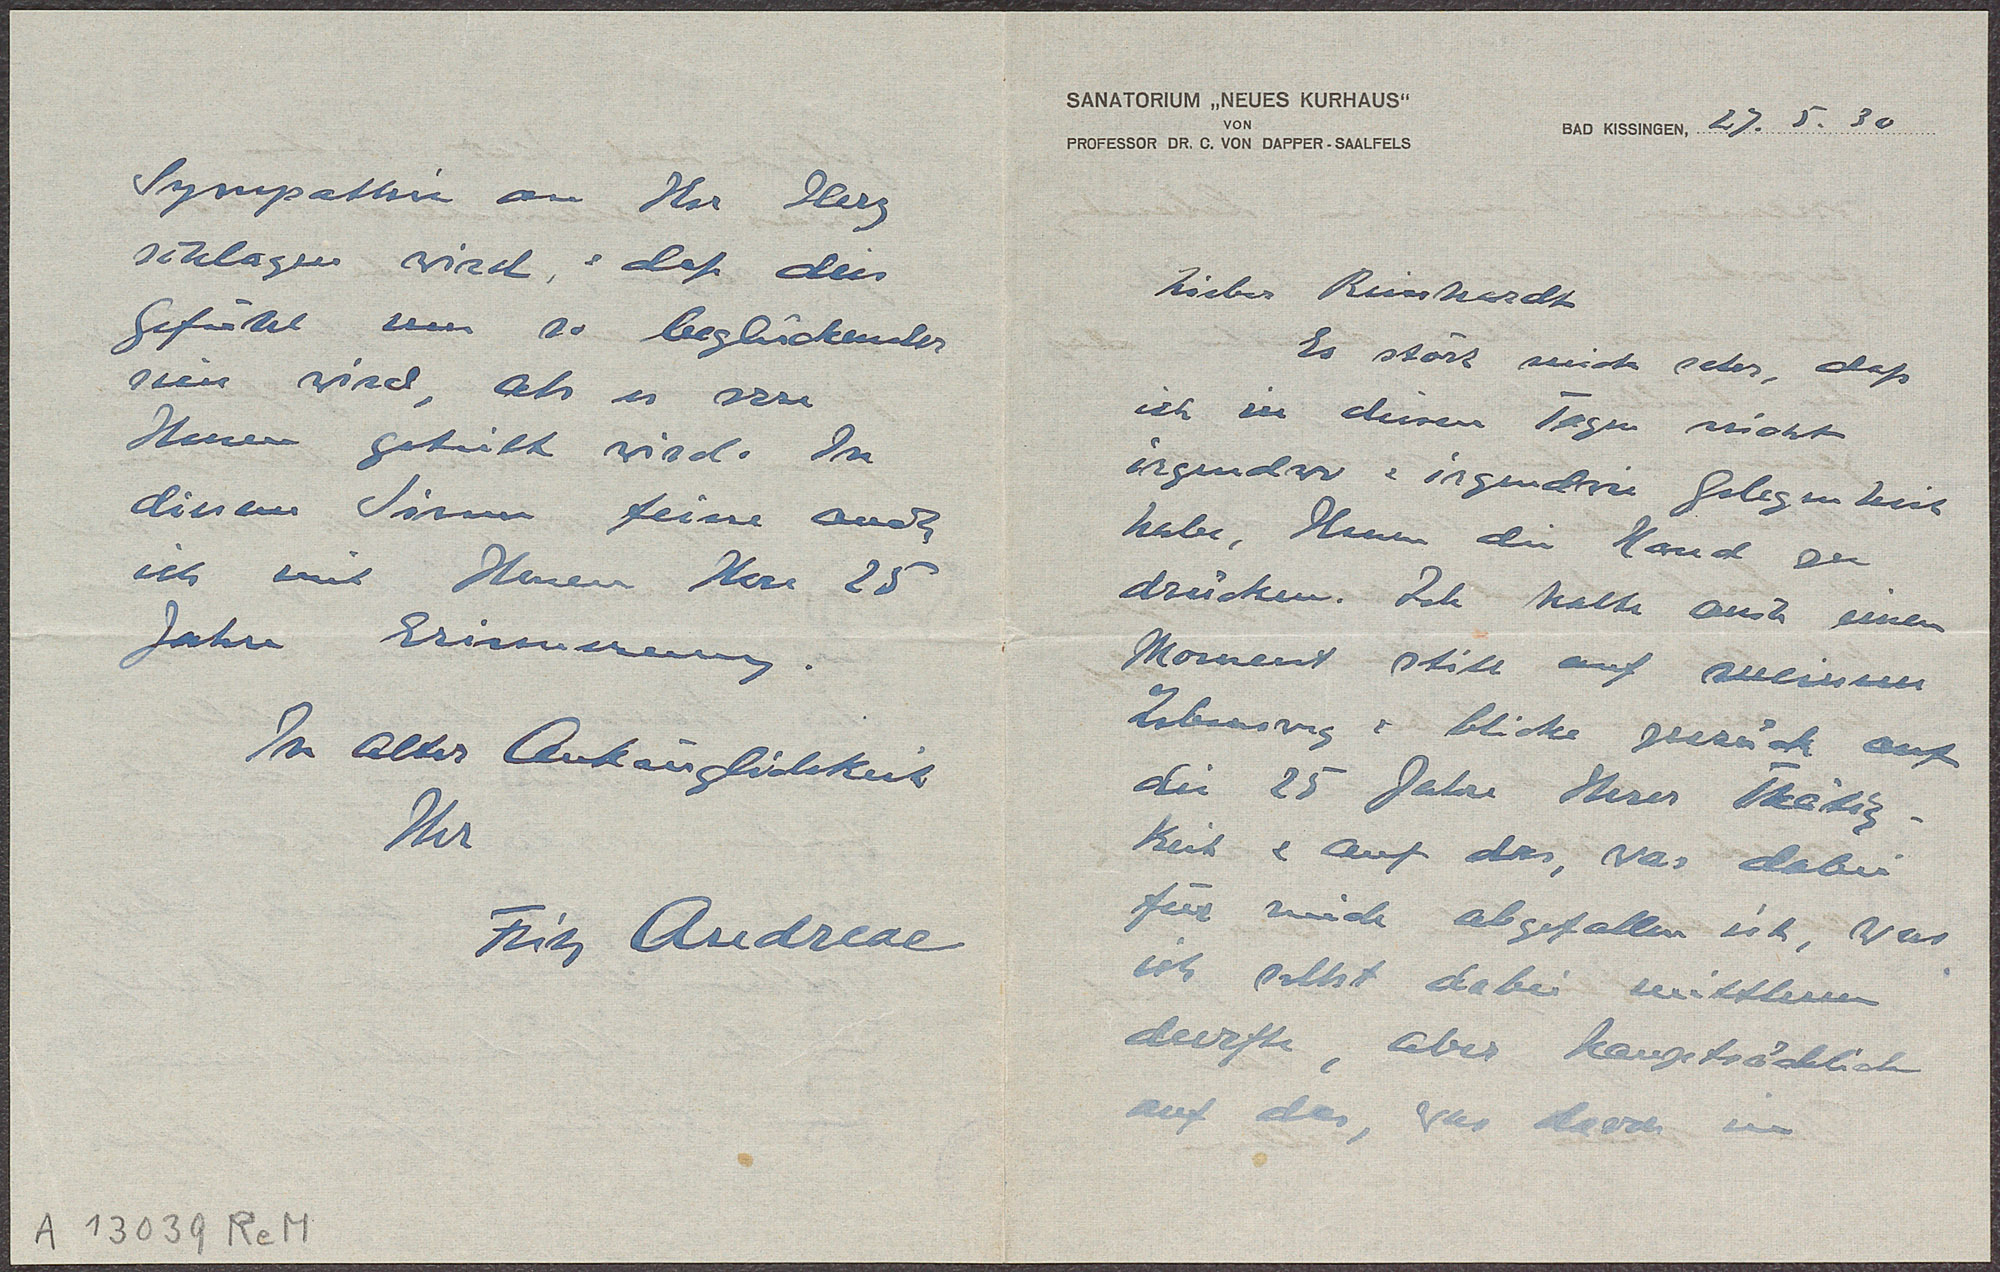 SANATORIUM „NEUES KURHAUS“
VON
PROFESSOR DR. C. VON DAPPER-SAALFELS
BAD KISSINGEN, 27. 5. 30
Lieber Reinhardt
Es stört mich sehr, dass
ich in diesen Tagen nicht
irgendwo & irgendwie Gelegenheit
habe, Ihnen die Hand zu
drücken. Ich halte auch einen
Moment still auf meinem
Lebensweg & blicke zurück auf
die 25 Jahre Ihrer Thätig-
keit & auf das, was dabei
für mich abgefallen ist, was
ich selbst dabei
durfte, aber hauptsächlich
auf das, was davon in
Sympathie an Ihr Herz
schlagen wird, & dass dies
Gefühl um so beglückender
sein wird, als es von
Ihnen geteilt wird. In
diesem Sinne feire auch
ich mit Ihnen Ihre 25
Jahre Erinnerung.
In alter Anhänglichkeit
Ihr
Fritz Andreae
A 13039 ReM